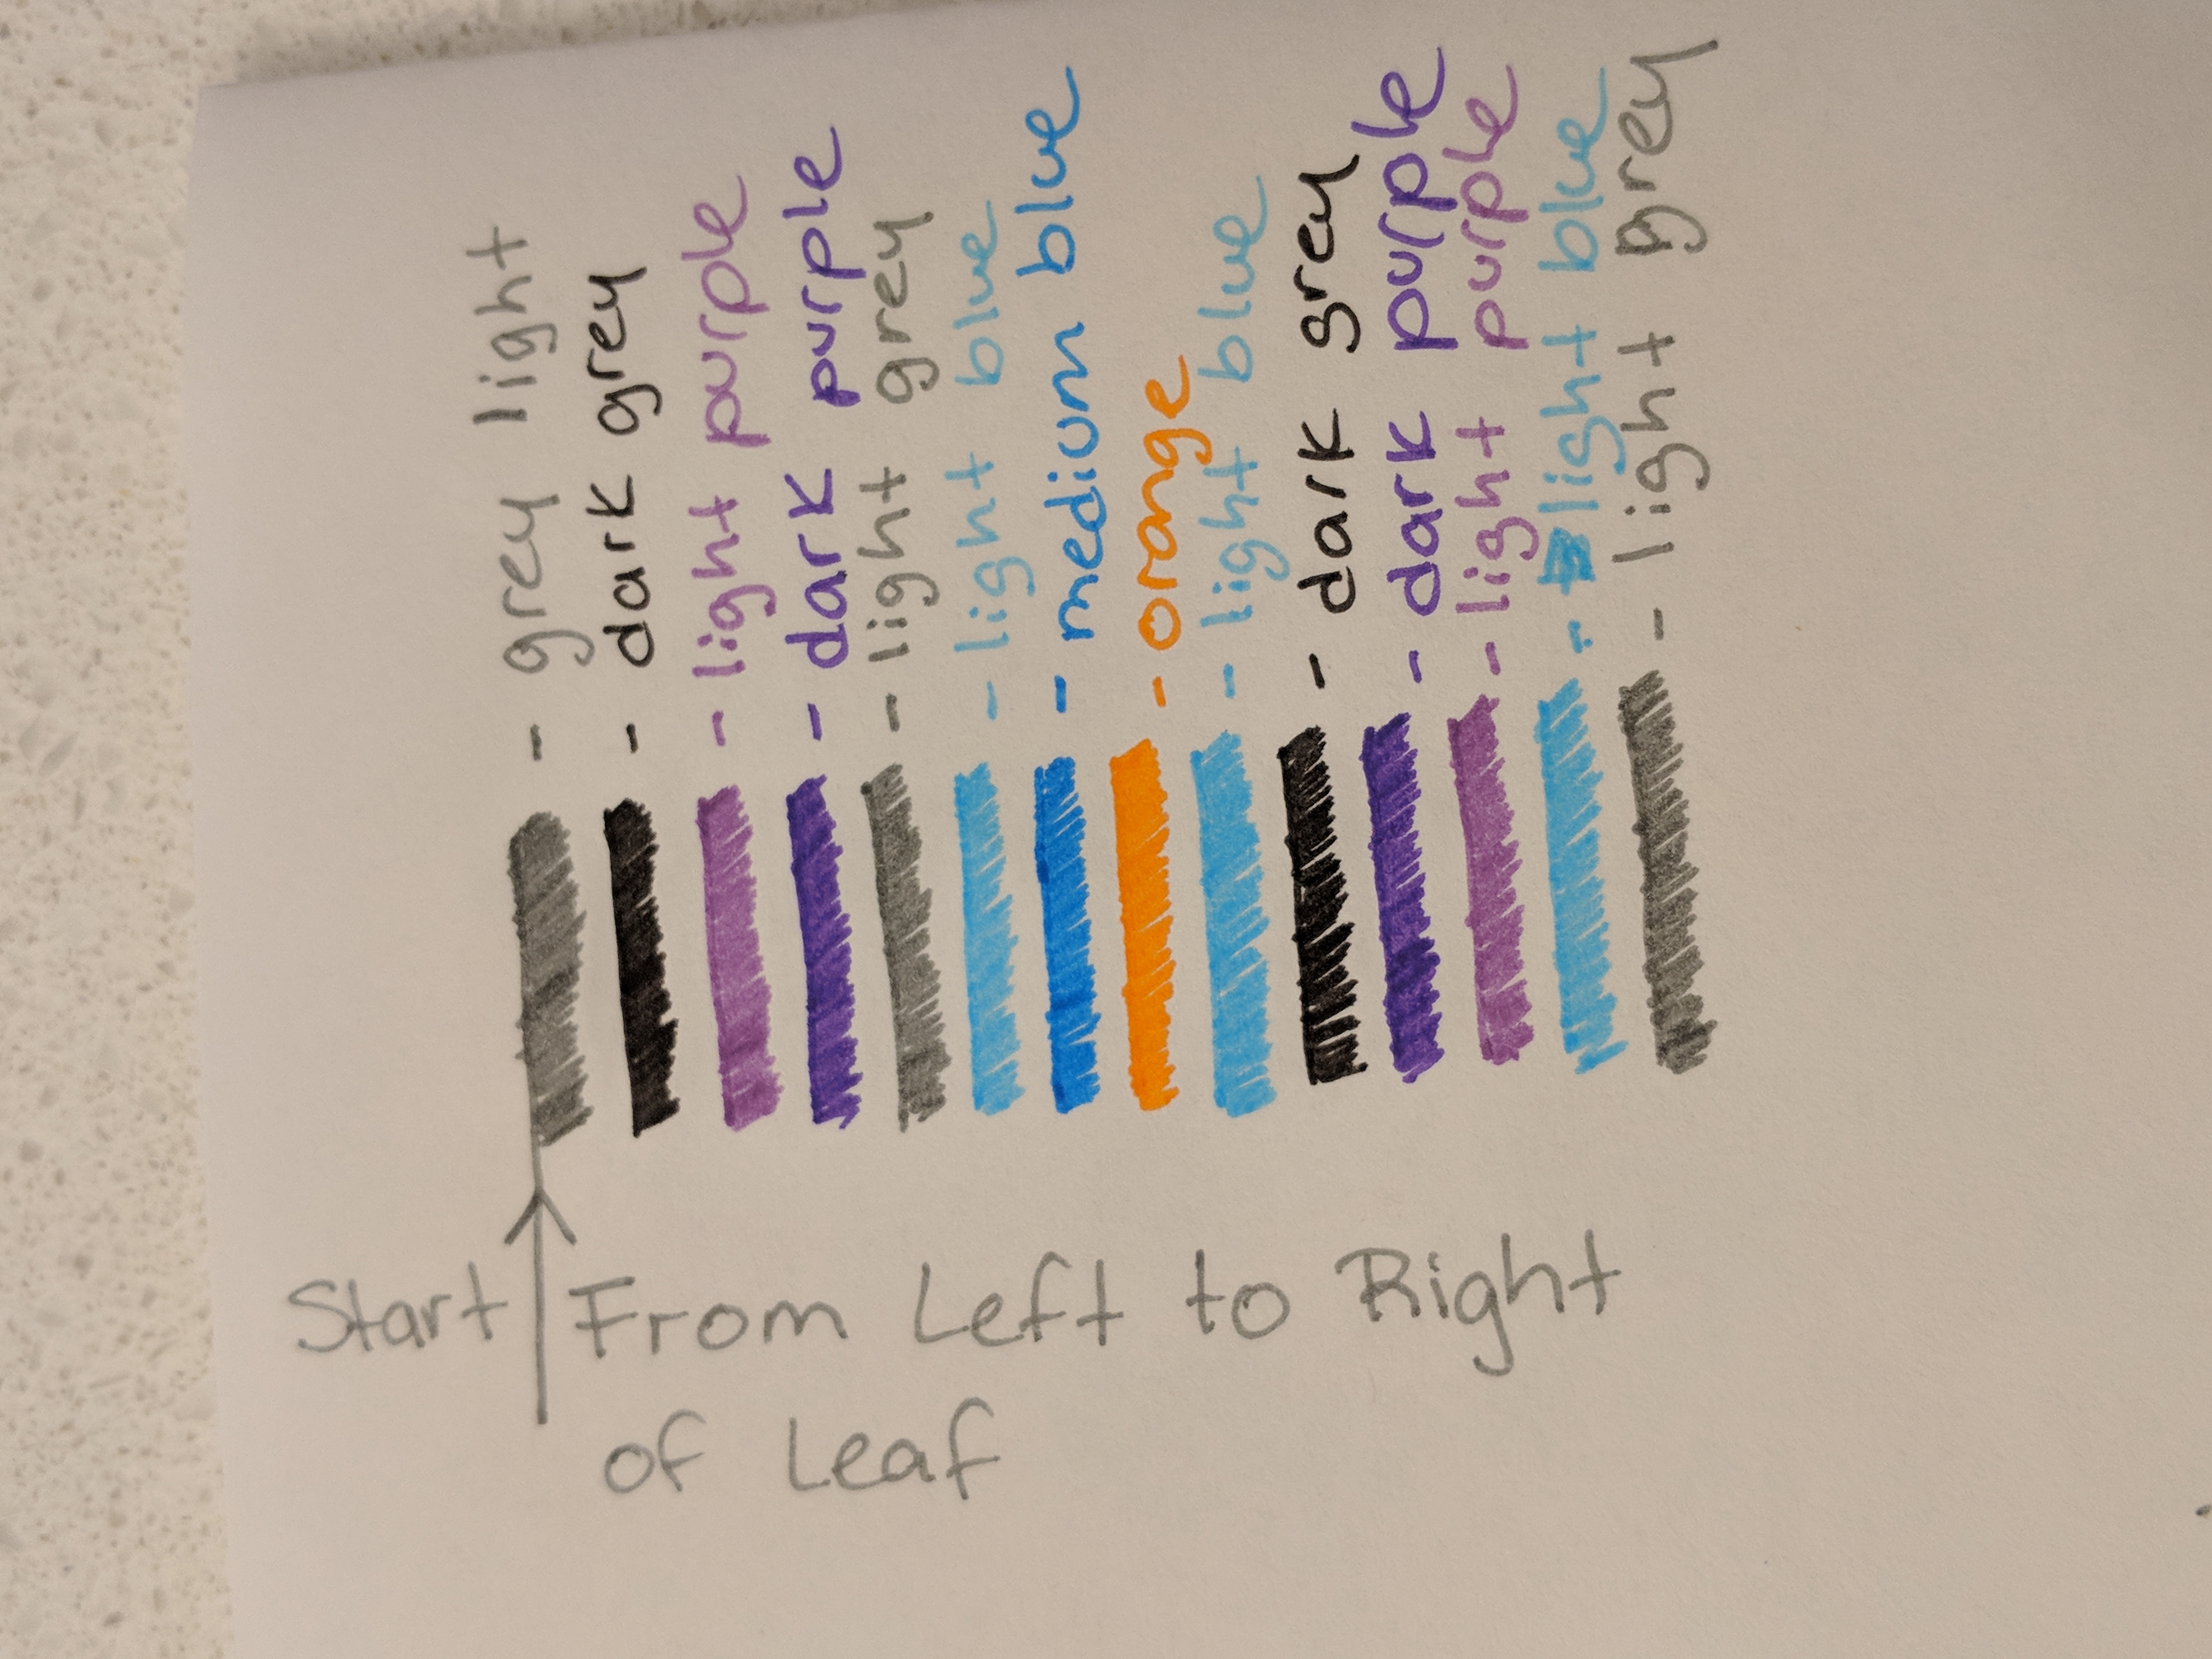 - grey light
- dark grey
- light purple
- dark purple
- light grey
- light blue
- medium blue
- orange
- light blue
- dark grey
- dark purple
- light purple
- light blue
- light grey
Start From Left to Right
of Leaf